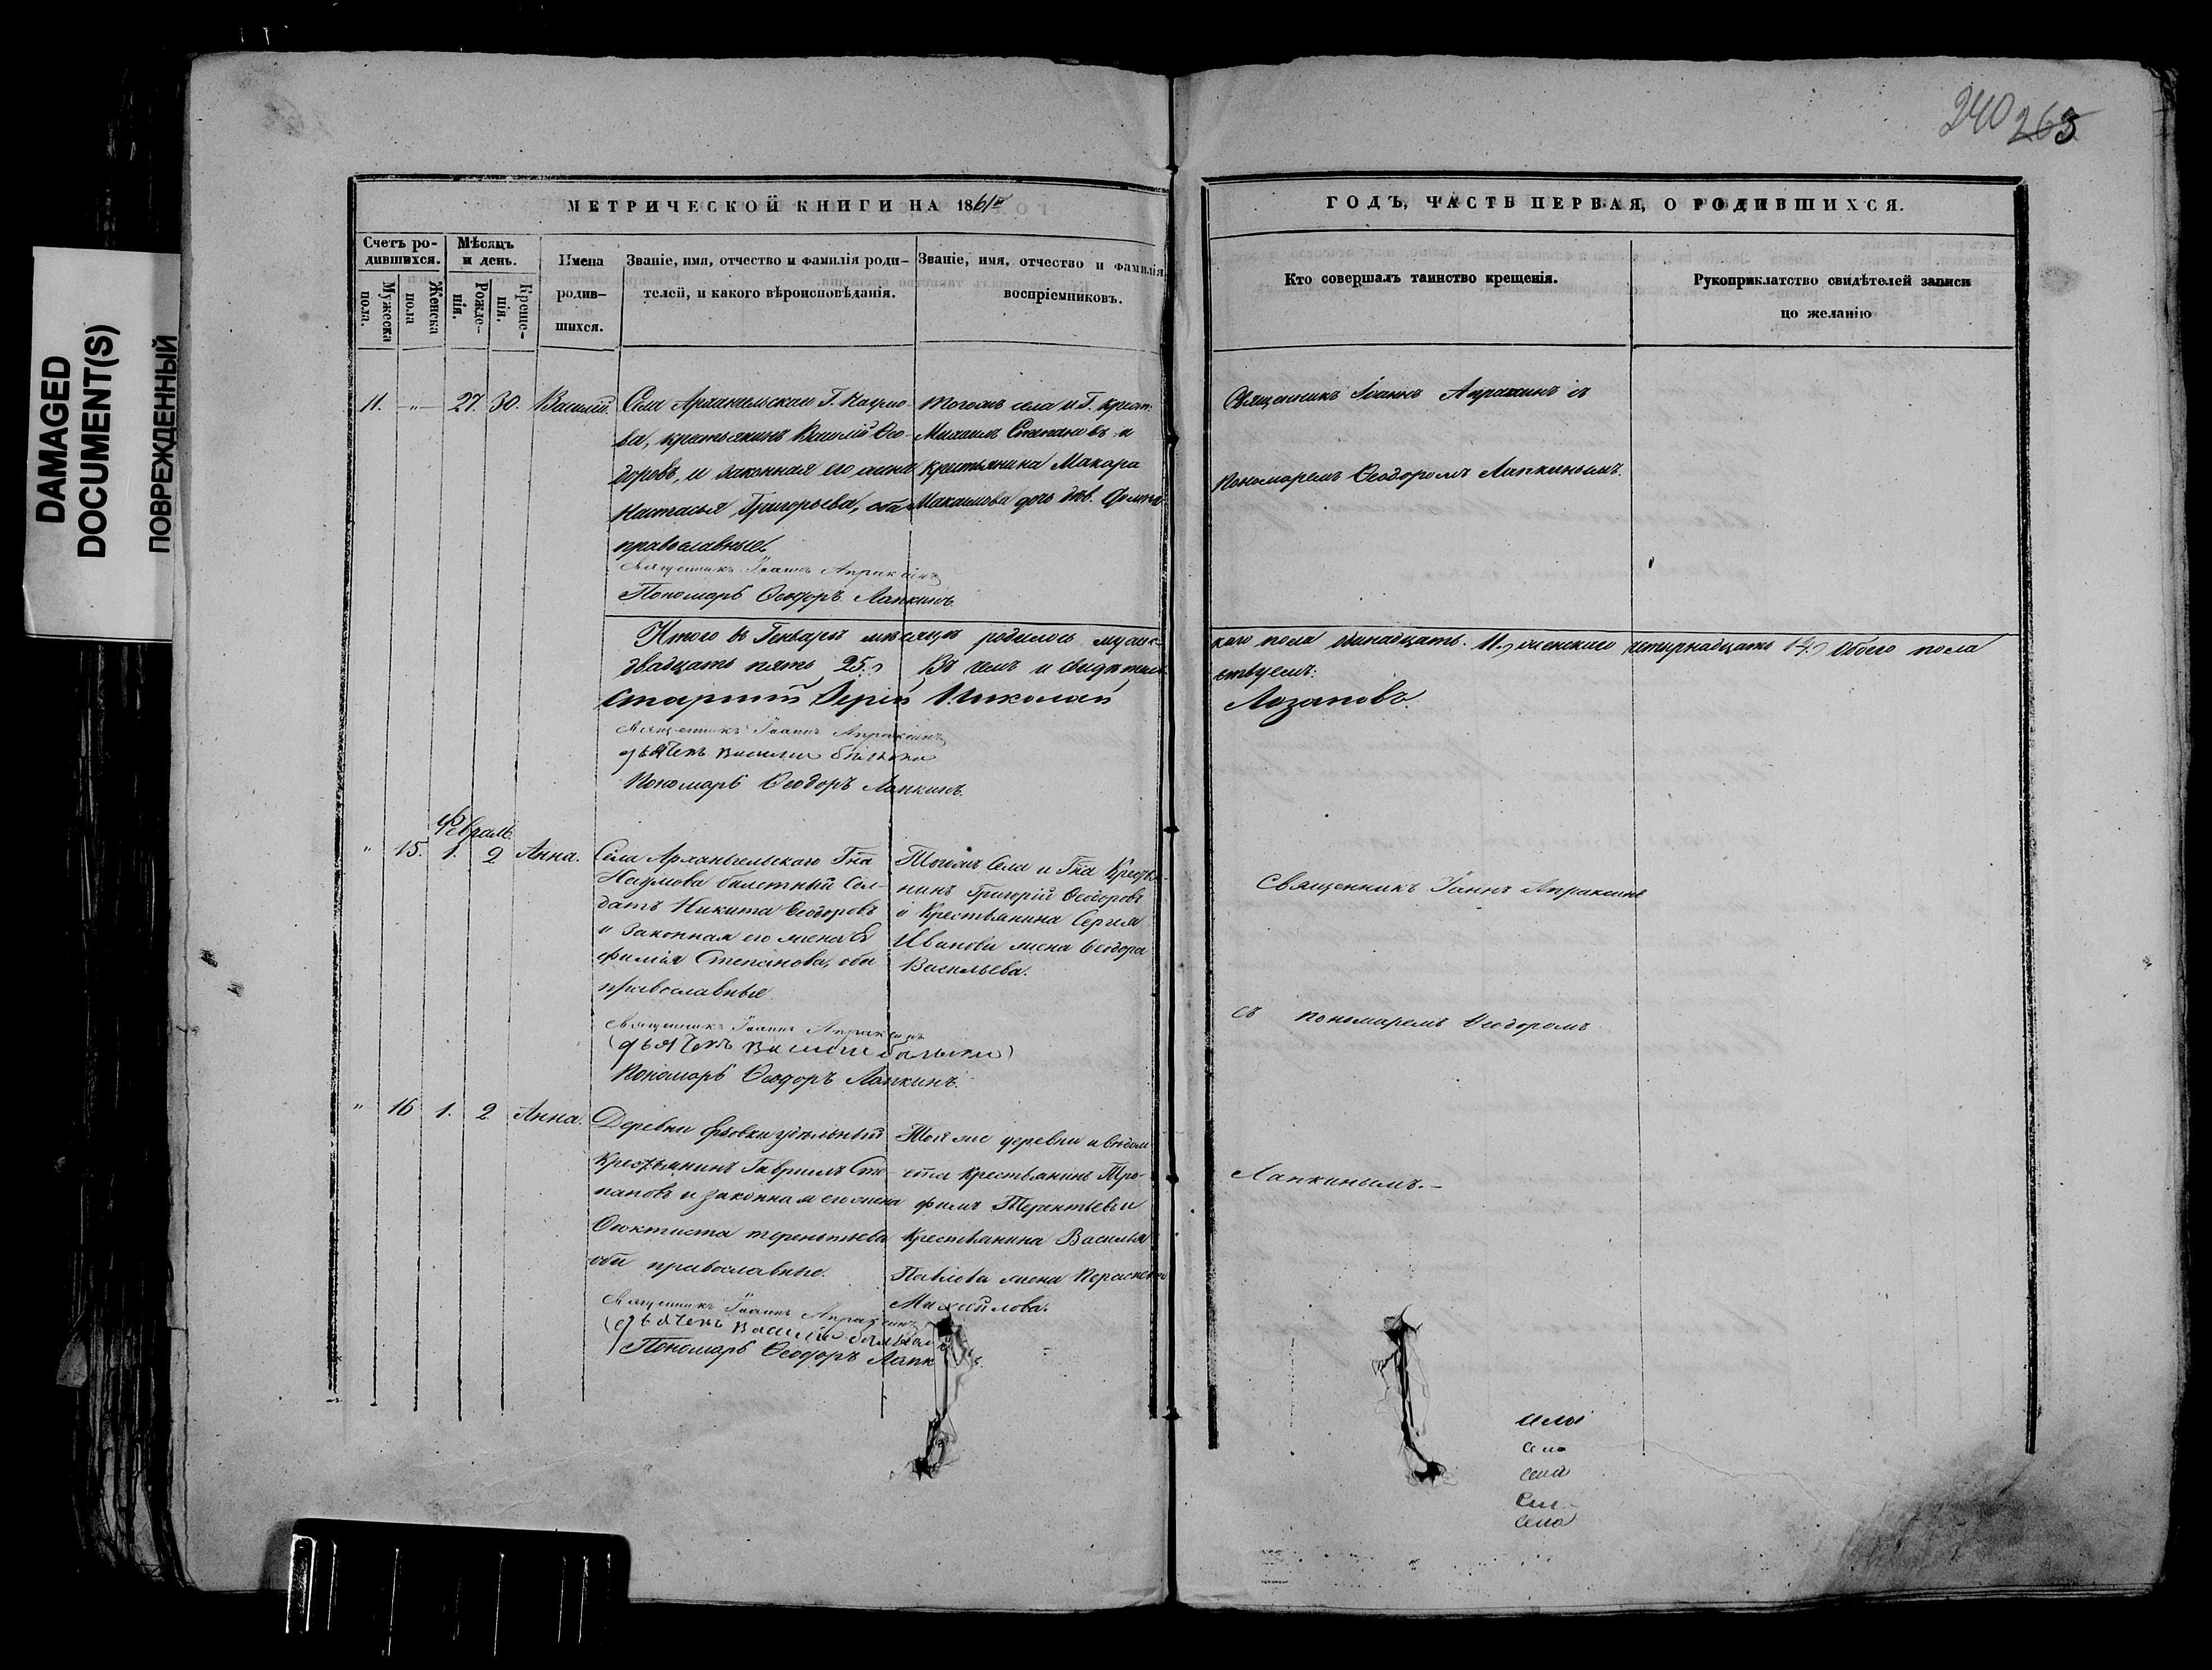 DAMAGED
DOCUMENT(S)
ПОВРЕЖДЕННЫЙ
240 263
МЕТРИЧЕСКОЙ КНИГИ НА 1861й
ГОДЪ, ЧАСТЬ ПЕРВАЯ, О РОДИВШИХСЯ.
Счетъ ро-
дившихся.
Мужеска
пола.
Женска
пола
Мѣсяцъ
и день.
Рожде-
нія.
Креще-
нія.
Имена
родив-
шихся.
Званіе, имя, отчество и фамилія роди-
телей, и какого вѣроисповѣданія.
Званіе, имя, отчество и фамилія
воспріемниковъ.
Кто совершалъ таинство крещенія.
Рукоприклатство свидѣтелей записи
по желанію
11. —„— 27. 30. Василій.
Села Архангельскаго Г. Наумо-
ва, крестьянинъ Василій Ѳео-
доровъ, и законная его жена
Настасья Григорьева, оба
православные.
Священникъ Іоаннъ Апраксинъ
Пономарь Ѳеодоръ Лапкинъ.
Тогожъ села и Г. крест.
Михаилъ Степановъ и
крестьянина Макара
Максимова дочь дѣв.
Священникъ Іоаннъ Апраксинъ съ
Пономаремъ Ѳеодоромъ Лапкинымъ.
Итого въ Генварѣ мѣсяцѣ родилось мужес-
каго пола одинадцать 11, женскаго четырнадцать 14, обоего пола
двадцать пять 25. Въ чемъ и свидѣтель-
ствуемъ:
Старшій Іерей Николай
Лозановъ.
Священникъ Іоаннъ Апраксинъ
дьячекъ Василий
Пономарь Ѳеодоръ Лапкинъ.
Февраль.
„ 15. 1. 2 Анна.
Села Архангельскаго Гна
Наумова билетный Сол-
датъ Никита Ѳеодоровъ
и Законная его жена Ев
фимія Степанова, оба
православные
Священникъ Іоаннъ Апраксинъ
дьячекъ Василий
Пономарь Ѳеодоръ Лапкинъ.
Тогожъ Села и Гна Крестья-
нинъ Григорій Ѳеодоровъ
и Крестьянина Сергея
Иванова жена Ѳеодора
Васильева.
Священникъ Іаннъ Апраксинъ
съ пономаремъ Ѳеодоромъ
Лапкинымъ.—
„ 16 1. 2 Анна.
Деревни удѣльный
Крестьянинъ Гавриилъ Сте-
пановъ и законная его жена
Ѳеоктиста терентьева
оба православные.
Священникъ Іоаннъ Апраксинъ
дьячекъ Василий
Пономарь Ѳеодоръ Лапк
Той же деревни и вѣдом
ства Крестьянинъ Тро-
фимъ Терентьевъ и
Крестьянина Василья
Павлова жена
Михайлова.
села
село
села
Сел
села